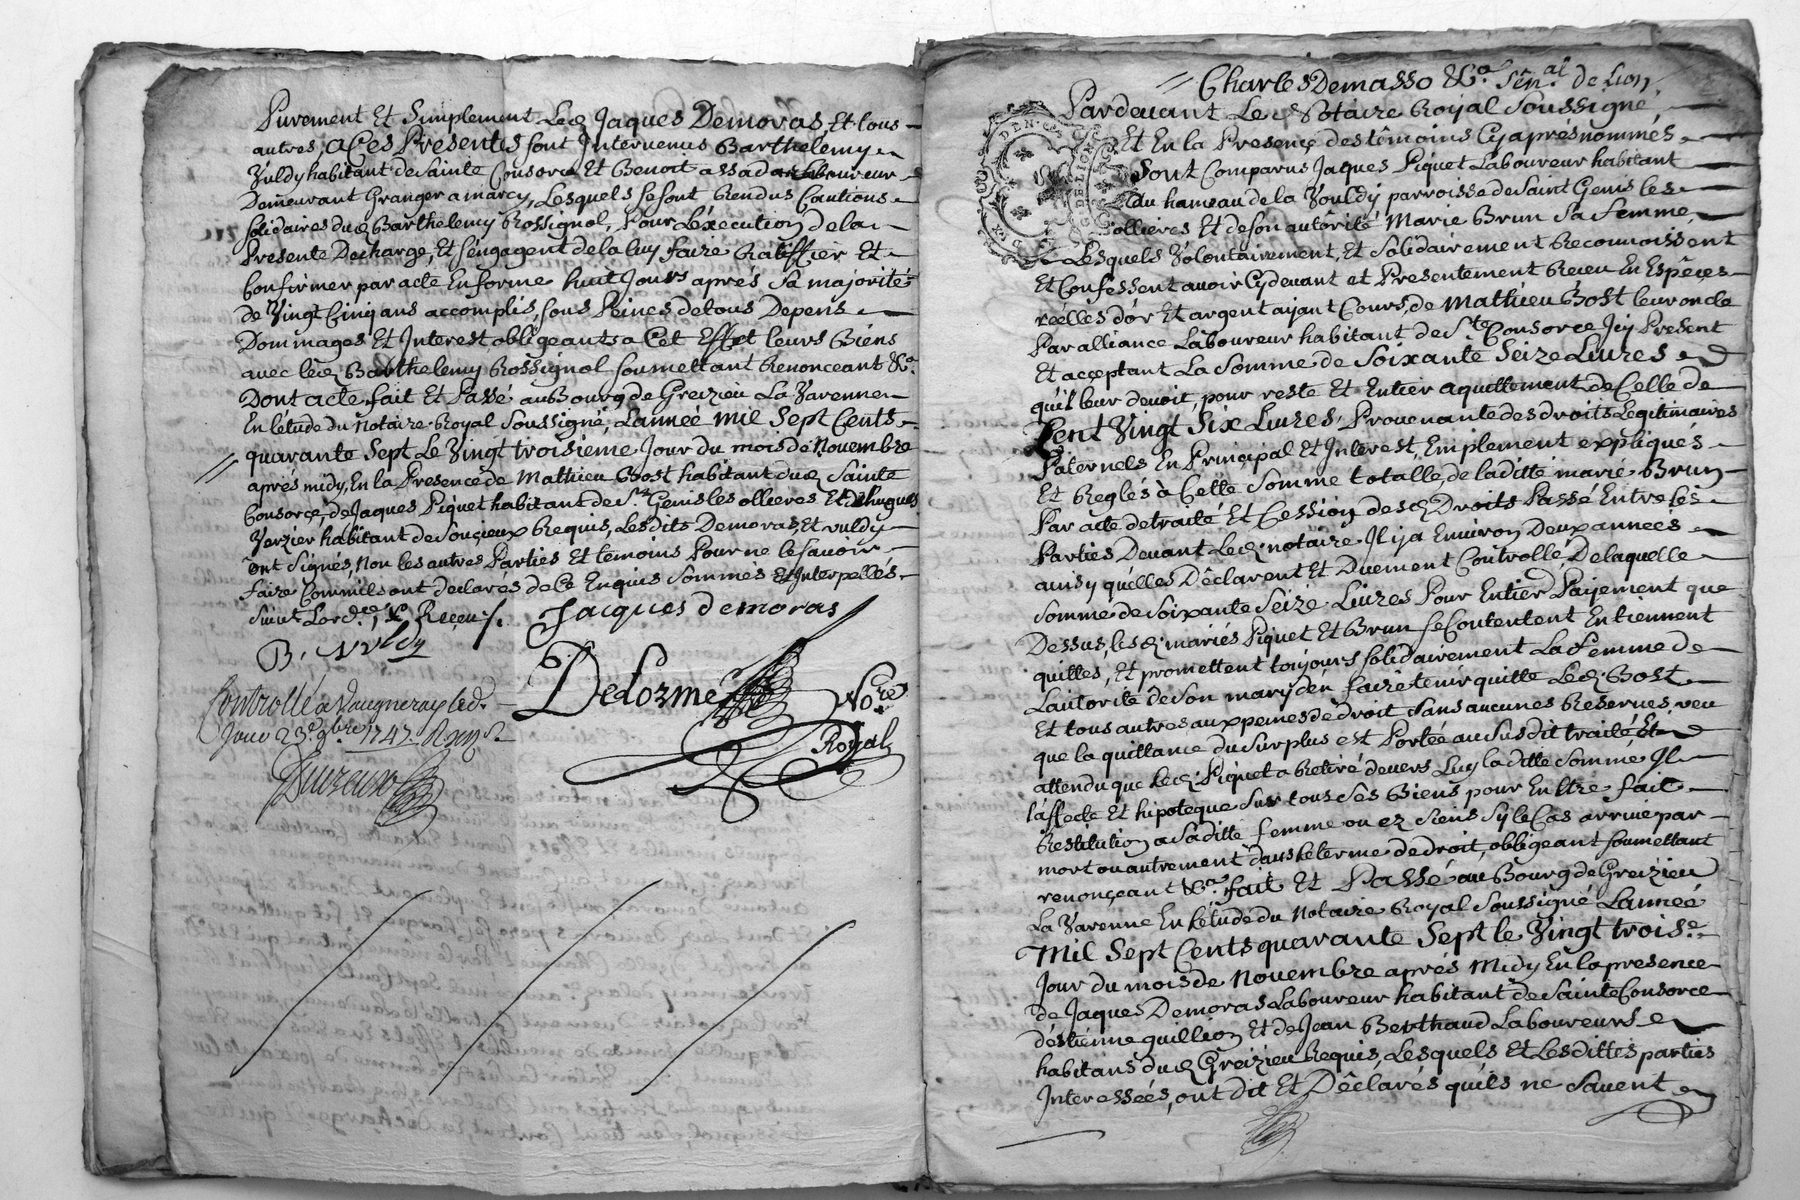 Purement Et Simplement Led. Jaques Demoras, Et tous
autres, a Ces Presentes sont Intervenus Barthelemy
Vuldy habitant de Sainte Consorce Et Benoit assada Laboureur
Demeurant Granger a marcy, Lesquels se sont Rendus Cautions
solidaires dud. Barthelemy Rossignol, Pour L'éxecution de la
Presente Decharge, Et s'engagent de la luy faire Ratiffier Et
Confirmer par acte En forme huit Jours aprés Sa majorité
de Vingt Cinq ans accomplis, sous Peines de tous Depens
Dommages Et Interest, obligeants a Cet Effet leurs Biens
avec led. Barthelemy Rossignol soumettant Renonceant &c.
Dont acte fait Et Passé au Bourg de Greizieu La Varenne
En l'étude du Notaire Royal Soussigné, L'année mil Sept Cents
quarante Sept Le Vingt troisieme Jour du mois de Novembre
aprés midy, En la Presence de Mathieu Bost habitant dud. Sainte
Consorce, de Jaques Piquet habitant de St. Genis les ollieres Et d'hugues
Verzier habitant de Soucieux Requis, Lesdits Demoras Et vuldy
ont Signés, Non les autres Parties Et temoins Pour ne le savoir
faire Comm'ils ont declares de Ce Enquis Sommés Et Interpellés
Suivt. L'ord.ce, Le Reçeu
Jacques demoras
B. vuldy
Delorme Nore.
Royal
Controllé a Vaugneray led.
Jour 23e. 9bre 1747
Charles Demasso &ca. Sen.al de Lion.
Pardevant Le Notaire Royal Soussigné,
Et En la Presençe des têmoins Cy aprés nommés
Sont Comparus Jaques Piquet Laboureur habitant
Au hameau de la Vouldy parroisse de Saint Genis les
ollieres Et de son autôrité Marie Brun Sa femme,
Lesquels Volontairement, Et Solidairement Reconnoissent
Et Confessent avoir Cydevant et Presentement Reçeu En Espêçes
réelles d'or Et argent ajant Cours, de Mathieu Bost leur oncle
Par alliance Laboureur habitant de Ste. Consorce Jcy Present
Et acceptant La Somme de Soixante Seize Livres
qu'il leur devoit, pour reste Et Entier aquittement de Celle de
Cent Vingt Six Livres, Provenante des droits Legitimaires
Paternels En Principal Et Interest, Emplement expliqués
Et Reglés à Cette Somme totalle, de laditte marie Brun
Par acte de traité Et Cession desd. Droits Passé Entre les
Parties Devant Led. notaire Il ya Environ Deux années
ainsy qu'elles Dêclarent Et Duement Controllé, De laquelle
Somme de Soixante Seize Livres Pour Entier Paijement que
Dessus, lesd. mariés Piquet Et Brun se Contentent En tiennent
quittes, Et promettent toujours solidairement La femme de
L'autorité de Son mary d'en faire tenir quitte Led. Bost
Et tous autres aux peines de droit Sans aucunes Reserves, veu
que la quittance du Surplus est Portée au Susdit traité, Et
attendu que led. Piquet a Retiré devers Luy laditte Somme, Il
l'affecte et hipoteque Sur tous Ses Biens pour En Etre fait
Restitution a Saditte femme ou ez Siens Sy le Cas arrive par
mort ou autrement dans le terme de droit, obligeant soumettant
renonçeant &ca. fait Et Passé au Bourg de Greizieu
La Varenne En l'étude du Notaire Royal Soussigné L'année
Mil Sept Cents quarante Sept le Vingt trois.e
Jour du mois de Novembre aprés Midy En la presence
de Jaques Demoras Laboureur habitant de Sainte Consorce
d'éstienne quillion Et de Jean Berthaud Laboureurs
habitans dud. Greizieu Requis, Lesquels Et Lesdittes parties
Interessées, ont dit Et Déclarés qu'ils ne Savent